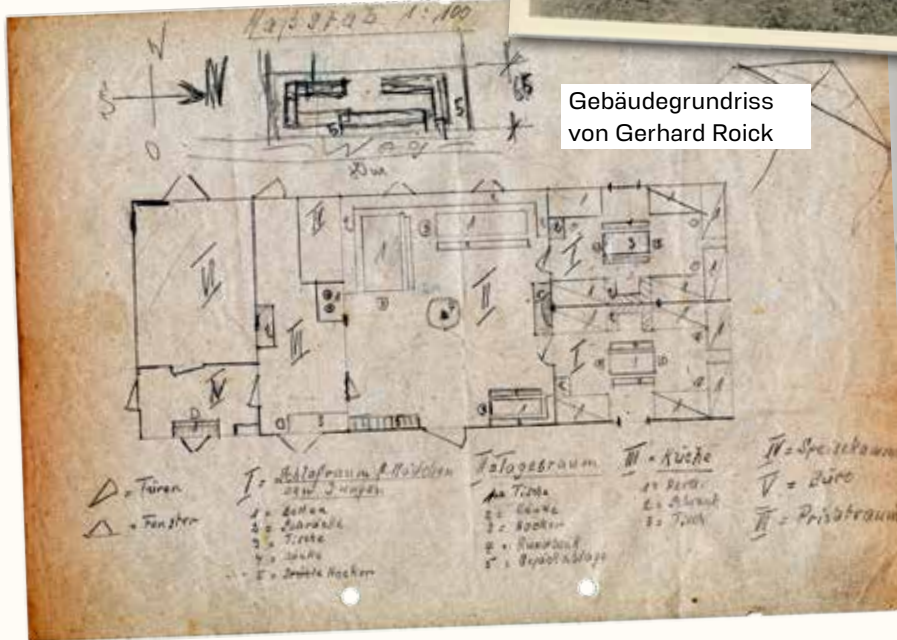 Maßstab 1:100
W
S N
O
65
5
5
Weg
20 m
Gebäudegrundriss
von Gerhard Roick
= Türen
= Fenster
I = Schlafraum f. Mädchen
bzw. Jungen
1 = Betten
2 = Schränke
3 = Tische
4 = Bänke
5 = Hocker
II = Tagesraum
1 = Tische
2 = Bänke
3 = Hocker
5 = Gepäckablage
III = Küche
1 =
2 = Schrank
3 = Tisch
IV = Speisekammer
V = Büro
= Privatraum